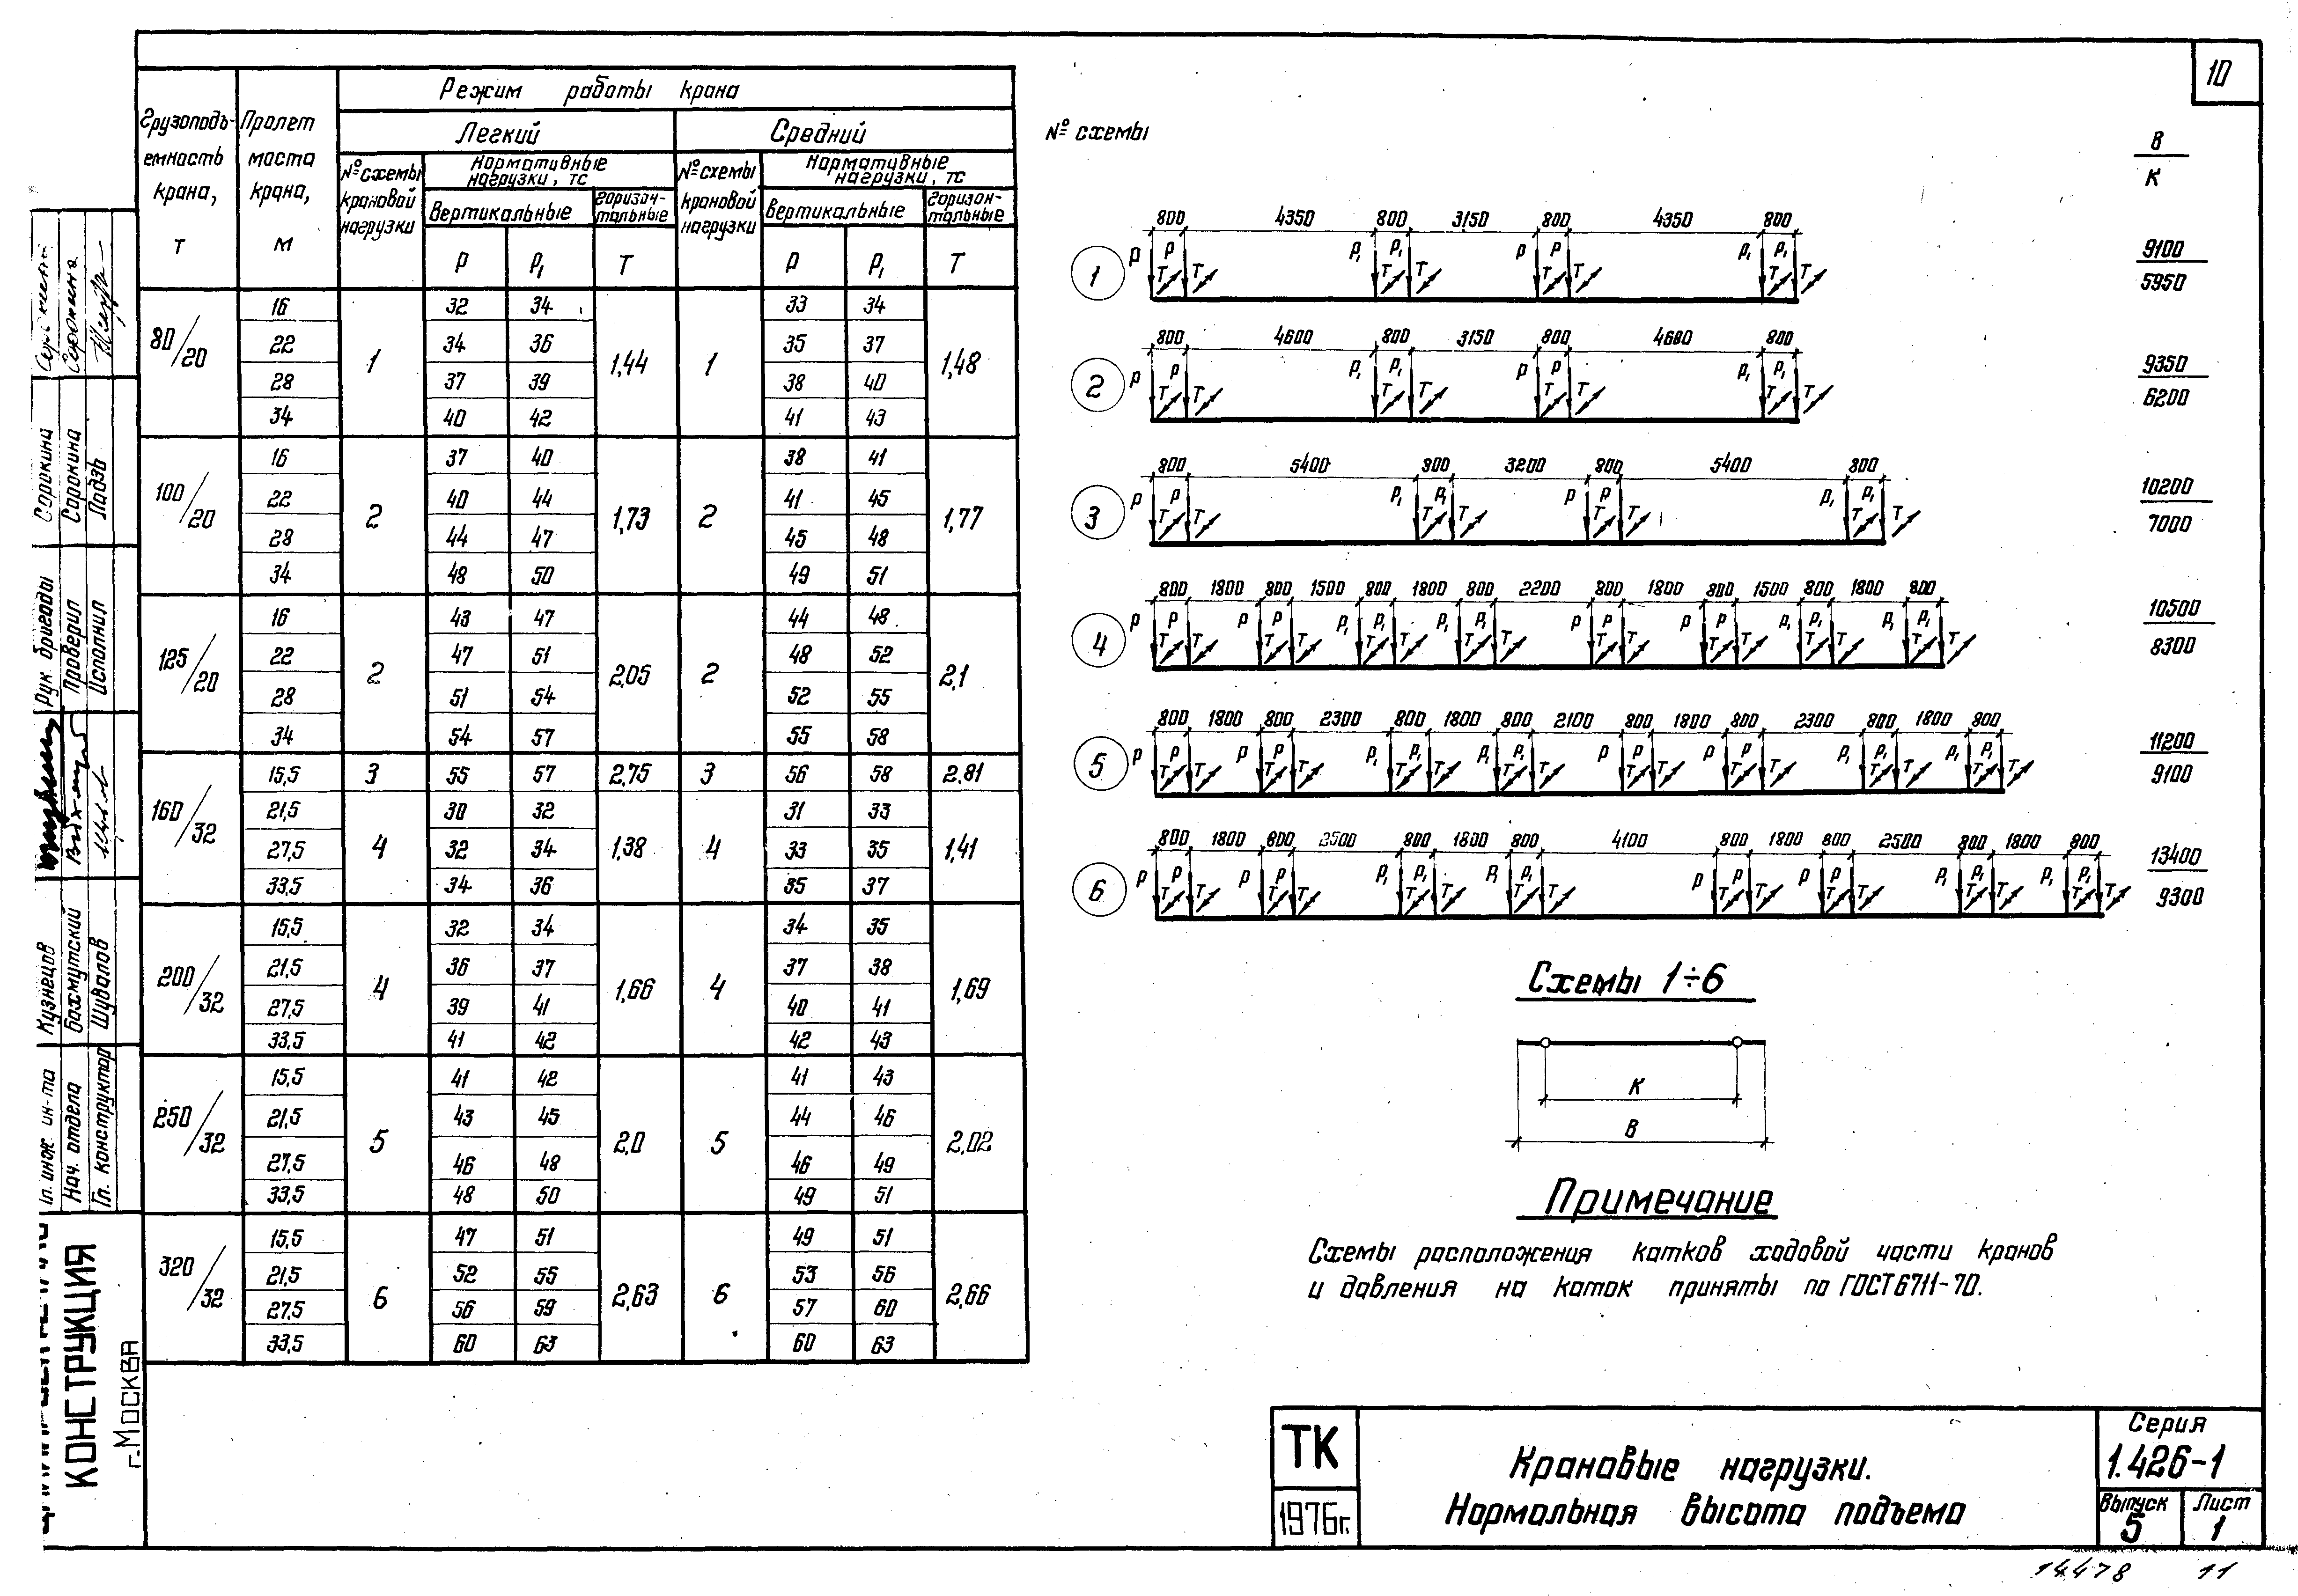 10
Режим работы крана
Грузоподъ-емность крана, т
Пролет моста крана, м
Легкий
Средний
№ схемы крановой нагрузки
Нормативные нагрузки, тс
№ схемы крановой нагрузки
Нормативные нагрузки, тс
Вертикальные
Горизон-тальные
Вертикальные
Горизон-тальные
P P₁ T P P₁ T
80/20 16 1 32 34 1,44 1 33 34 1,48
22 34 36 35 37
28 37 39 38 40
34 40 42 41 43
100/20 16 2 37 40 1,73 2 38 41 1,77
22 40 44 41 45
28 44 47 45 48
34 48 50 49 51
125/20 16 2 43 47 2,05 2 44 48 2,1
22 47 51 48 52
28 51 54 52 55
34 54 57 55 58
160/32 15,5 3 55 57 2,75 3 56 58 2,81
21,5 4 30 32 1,38 4 31 33 1,41
27,5 32 34 33 35
33,5 34 36 35 37
200/32 15,5 4 32 34 1,66 4 34 35 1,69
21,5 36 37 37 38
27,5 39 41 40 41
33,5 41 42 42 43
250/32 15,5 5 41 42 2,0 5 41 43 2,02
21,5 43 45 44 46
27,5 46 48 46 49
33,5 48 50 49 51
320/32 15,5 6 47 51 2,63 6 49 51 2,66
21,5 52 55 53 56
27,5 56 59 57 60
33,5 60 63 60 63
№ схемы
В
К
800 4350 800 3150 800 4350 800
1 P P T T P₁ P₁ T T P P T T P₁ P₁ T T
9100
5950
800 4600 800 3150 800 4600 800
2 P P T T P₁ P₁ T T P P T T P₁ P₁ T T
9350
6200
800 5400 800 3200 800 5400 800
3 P P T T P₁ P₁ T T P P T T P₁ P₁ T T
10200
7000
800 1800 800 1500 800 1800 800 2200 800 1800 800 1500 800 1800 800
4 P P T T P P T T P₁ P₁ T T P₁ P₁ T T P P T T P P T T P₁ P₁ T T P₁ P₁ T T
10500
8300
800 1800 800 2300 800 1800 800 2100 800 1800 800 2300 800 1800 800
5 P P T T P P T T P₁ P₁ T T P₁ P₁ T T P P T T P P T T P₁ P₁ T T P₁ P₁ T T
11200
9100
800 1800 800 2500 800 1800 800 4100 800 1800 800 2500 800 1800 800
6 P P T T P P T T P₁ P₁ T T P₁ P₁ T T P P T T P P T T P₁ P₁ T T P₁ P₁ T T
13400
9300
Схемы 1÷6
К
В
Примечание
Схемы расположения катков ходовой части кранов
и давления на каток приняты по ГОСТ 6711-70.
ТК
1976г.
Крановые нагрузки.
Нормальная высота подъема
Серия
1.426-1
Выпуск
5
Лист
1
14478 11
Гл. инж. ин-та Кузнецов
Нач. отдела Бахмутский
Гл. конструктор Шувалов
Рук. бригады Сорокина
Проверил Сорокина
Исполнил Ладзь
КОНСТРУКЦИЯ
г. Москва